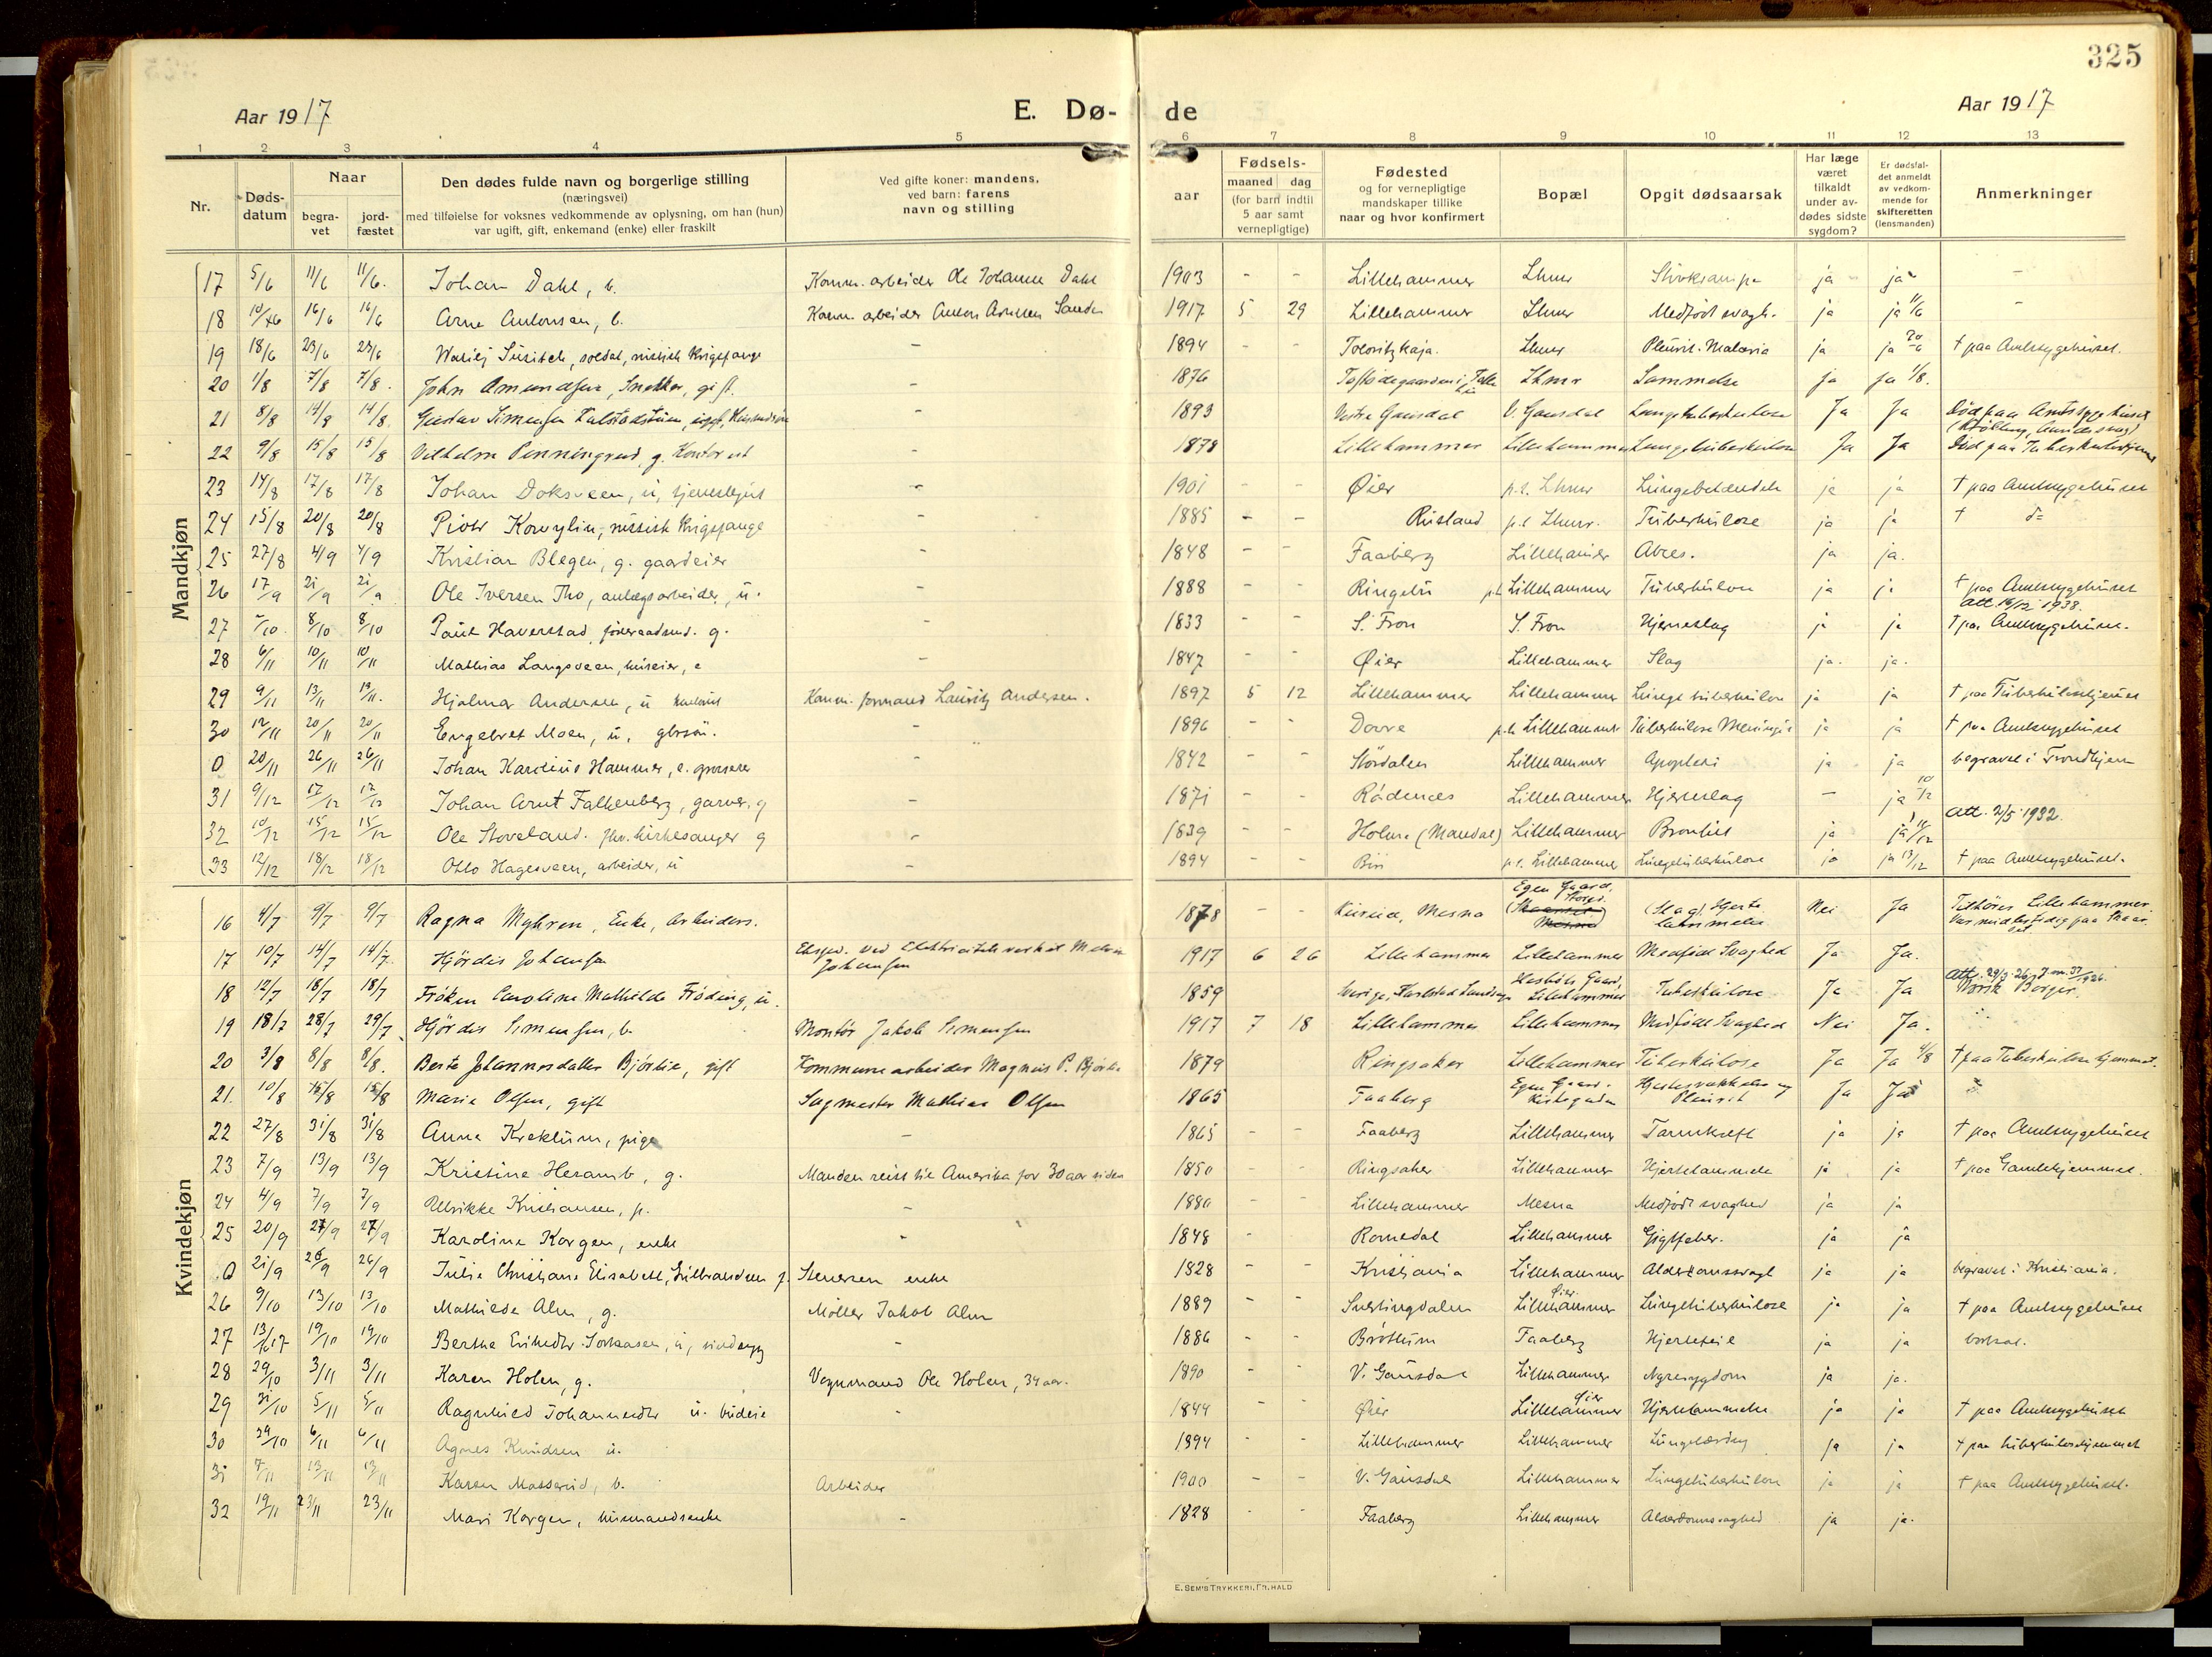 325
Aar 1917
E. Dø-
de
Aar 1917
1 2 3 4 5 6 7 8 9 10 11 12 13
Nr.
Døds-
datum
Naar
begra-
vet
jord-
fæstet
Den dødes fulde navn og borgerlige stilling
(næringsvei)
med tilføielse for voksnes vedkommende av oplysning, om han (hun)
var ugift, gift, enkemand (enke) eller fraskilt
Ved gifte koner: mandens,
ved barn: farens
navn og stilling
aar
Fødsels-
maaned dag
(for barn indtil
5 aar samt
vernepligtige)
Fødested
og for vernepligtige
mandskaper tillike
naar og hvor konfirmert
Bopæl
Opgit dødsaarsak
Har læge
været
tilkaldt
under av-
dødes sidste
sygdom?
Er dødsfal-
det anmeldt
av vedkom-
mende for
skifteretten
(lensmanden)
Anmerkninger
Mandkjøn
17 5/6 11/6 11/6. Johan Dahl, b. Komm. arbeider Ole Johannes Dahl 1903 - - Lillehammer Lhmr ja ja -
18 16/6 16/6 Arne Antonsen, b. Komm. arbeider Anton 1917 5 29 Lillehammer Lhmr Medfødt svagh. ja ja 11/6 -
19 18/6 23/6 23/6 soldat, russisk krigsfange - 1894 - - Lhmr Pleurit. Malaria ja ja 20/6 † paa Amtssygehuset.
20 1/8 7/8 7/8. John Amundsen, Snekker, gift. - 1876 Lhmr ja ja 1/8.
21 8/8 14/8 14/8 Gustav Simensen - 1893 Vestre Gausdal V. Gausdal Lungetuberkulose Ja Ja Død paa Amtssygehuset
22 9/8 15/8 15/8 Vilhelm Pinningrud, g. Kontorist - 1878 Lillehammer Lillehammer Lungetuberkulose Ja Ja Død paa Tuberkulosehjemmet
23 14/8 17/8 17/8 Johan Doksveen, u, tjenestegut - 1901 - - Øier p.t. Lhmr Lungebetændelse ja ja † paa Amtssygehuset
24 15/8 20/8 20/8 Piotr Kowylin, russisk krigsfange - 1885 - - Rusland p.t. Lhmr. Tuberkulose ja ja † do
25 27/8 4/9 4/9 Kristian Blegen, g. gaardeier - 1848 - - Faaberg Lillehamer Abces. ja ja.
26 17/9 21/9 21/9 Ole Iversen Tho, anlægsarbeider, u. - 1888 - - Ringebu p.t. Lillehammer Tuberkulose ja ja † paa Amtssygehuset
Att. 14/12 1938.
27 7/10. 8/10 8/10 Paul Haverstad, g. - 1833 - - S. Fron S. Fron Hjerneslag ja ja † paa Amtssygehuset.
28 6/11 10/11 10/11 Mathias Langsveen, huseier, e - 1847 - - Øier Lillehammer Slag ja. ja.
29 9/11 13/11 13/11. Hjalmar Andersen, u Komm. formand Lauritz Andersen. 1897 5 12 Lillehammer Lillehammer Lungetuberkulose ja ja † paa Tuberkulosehjemmet
30 12/11 20/11 20/11 Engebret Moen, u, gbrsøn. - 1896 - - Dovre p.t. Lillehammer Tuberkuløse Meningit ja ja † paa Amtssygehuset
0 20/11 26/11 26/11 Johan Karelius Hammer, e. grosserer - 1842 - - Størdalen Lillehammer Apopleksi ja ja begravet i Trondhjem
31 9/12 17/12 17/12 Johan Arnt Falkenberg, garver, g - 1871 - - Rødenes Lillehammer Hjerneslag - ja 10/12
32 10/12 15/12 15/12 Ole Stoveland. fhv. kirkesanger g - 1839 - - Holme (Mandal) Lillehammer Bronkit ja ja 11/12 Att. 2/5 1932.
33 12/12 18/12 18/12 Otto Hagesveen, arbeider, u - 1894 - - Biri p.t. Lillehammer Lungetuberkulose ja ja 13/12 † paa Amtssygehuset.
Kvindekjøn
16 4/7 9/7 9/7 Ragna Myhren, Enke, Arbeiders. 1878 - - Mesna Egen Gaard, (Slag). Hjerte Nei Ja Tilhører Lillehammer
17 10/7 14/7 14/7 Hjördis Johansen Eksped. ved Elektricitetsverket
Johansen 1917 6 26 Lillehammer Lillehammer Medfødt Svaghed Ja Ja.
18 12/7 18/7 18/7 Frøken Caroline Mathilde Fröding, u. 1859 Sverige, Karlstad Gaard,
Lillehammer Tuberkulose Ja Ja Norsk Borger.
19 18/7 28/7 29/7 Hjördis Simensen, b. Montør Jakob Simensen 1917 7 18 Lillehammer Lillehammer Medfødt Svaghed Nei Ja.
20 3/8 8/8 8/8. Berte Johannesdatter Bjørlie, gift Kommunearbeider Magnus P. Bjørlie 1879 Ringsaker Lillehammer Tuberkulose Ja Ja 4/8 † paa Tuberkulosehjemmet.
21. 10/8 15/8 15/8 Marie Olsen, gift Sagmester Mathias Olsen 1865 Faaberg Egen Gaard.
Kirkegaden Hjertesvækkelse og
Pleurit Ja Ja
22 27/8 31/8 31/8 Anna Kreklum, pige - 1865 - - Faaberg Lillehammer Tarmkræft ja ja † paa Amtssygehuset
23 7/9 13/9 13/9 Kristine Heramb, g. Manden reist til Amerika for 30 aar siden 1850 - - Ringsaker Lillehammer Hjertelammelse ja ja † paa Gamlehjemmet.
24 4/9 7/9 7/9 Ulrikke Kristiansen, p. - 1880 - - Lillehammer Mesna Medfødt svaghed ja ja
25 20/9 27/9 27/9 Karoline Korgen, enke - 1848 - Romedal Lillehammer Gigtfeber. ja ja
0 21/9 26/9 26/9 Julie Christiane Elisabeth, f. Stenersen enke 1828 - - Kristiania Lillehammer Alderdomssvagh ja ja begravet i Kristiania.
26 9/10 13/10 13/10 Mathilde Alm, g. Møller Jakob Alm 1889 - - Snertingdalen Øier.
Lillehammer Lungetuberkulose ja ja † paa Amtssygehuset
27 19/10 19/10 Berthe u, - 1886 - - Brøttum Faaberg Hjertefeil ja ja
28 29/10 3/11 3/11 Karen Holen, g. Vognmand Ole Holen, 34 aar. 1890 - - V. Gausdal Lillehammer Nyresygdom ja ja.
29 31/10 5/11 5/11 Ragnhild Johannesdtr u. budeie - 1844 - - Øier Øier
Lillehammer Hjertelammelse ja ja † paa Amtssygehuset
30 29/10 6/11 6/11 Agnes Knudsen u. 1894 Lillehammer Lillehammer ja ja † paa tuberkulosehjemmet
31 7/11 13/11 13/11 Karen b. Arbeider 1900 - - V. Gausdal Lillehammer Lungetuberkulose ja ja † paa Amtssygehuset.
32 19/11 23/11 23/11 Mari Korgen, husmandsenke - 1828 - - Faaberg Lillehammer Alderdomssvaghed ja ja.
E. SEM'S TRYKKERI, FR. HALD